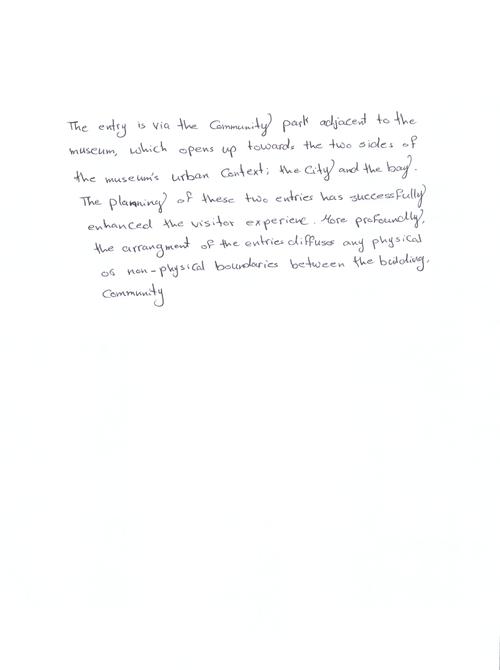 The entry is via the Community park adjacent to the
museum, which opens up towards the two sides of
the museum's urban Context; the City and the bay.
The planning of these two entries has successfully
enhanced the visitor experienc. More profoundly,
the arrangment of the entries diffuses any physical
or non-physical boundaries between the building,
Community